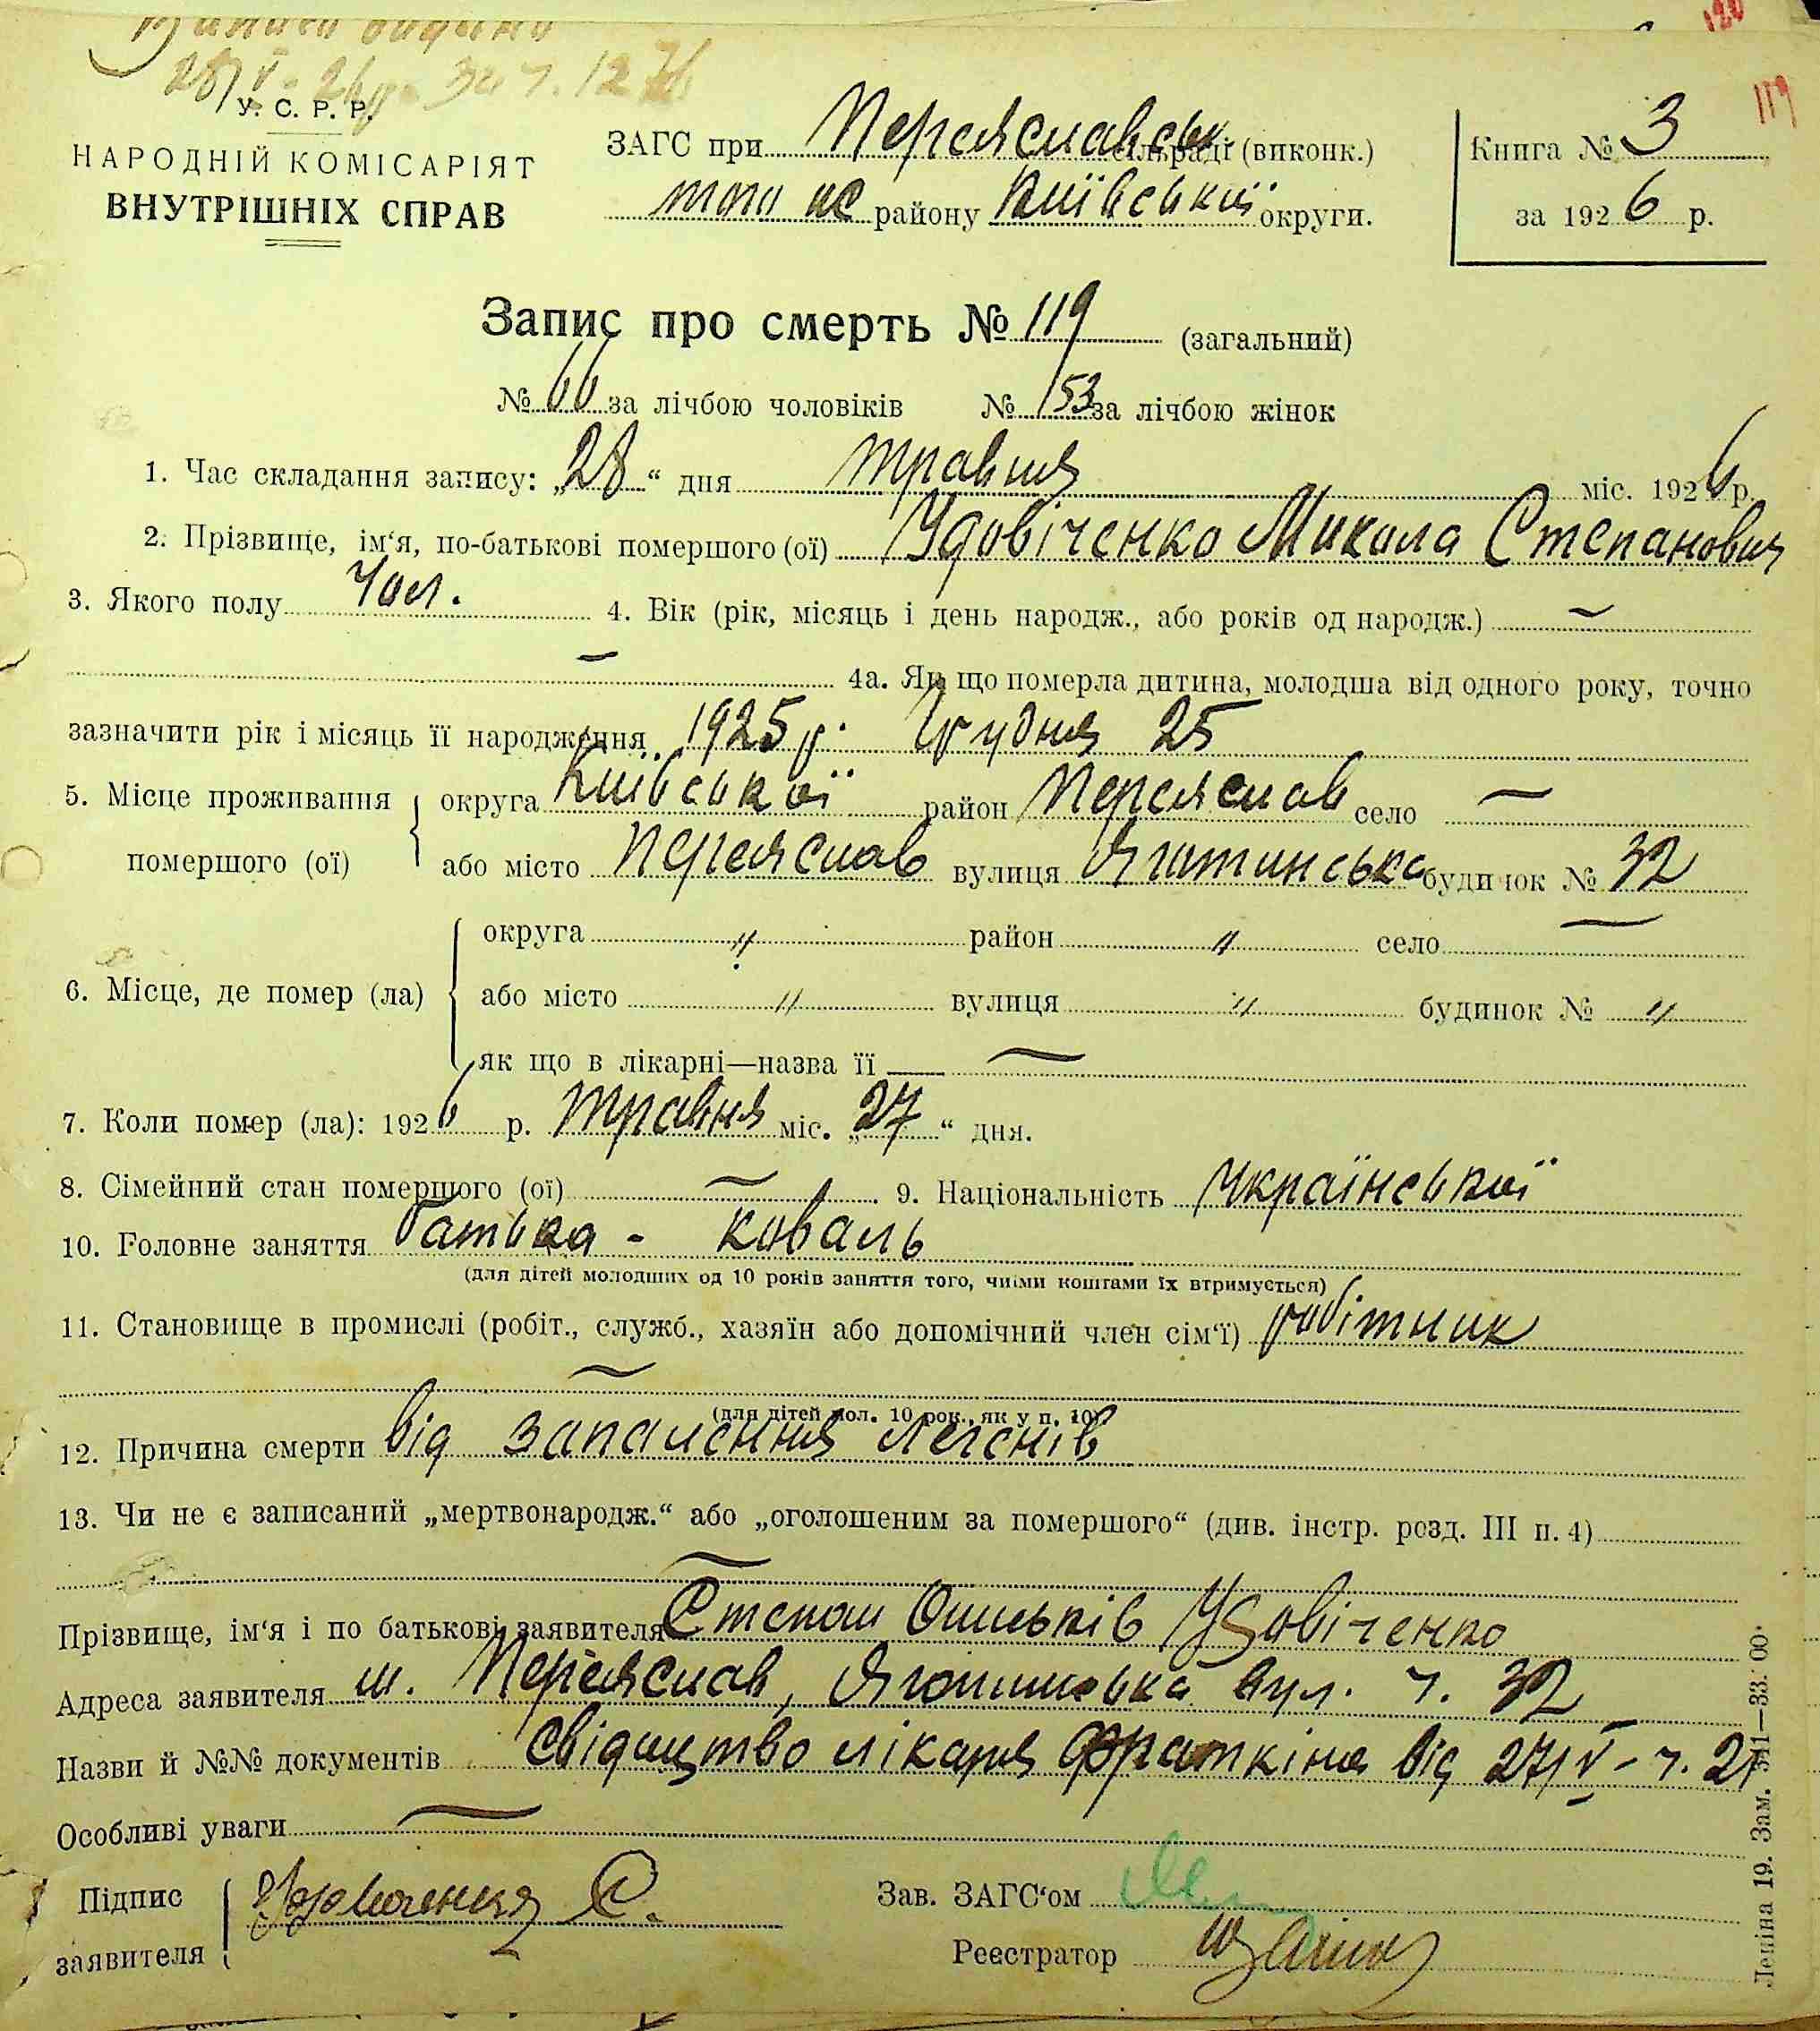 120
119
28/V - 26 р. за ч. 1276
У. С. Р. Р.
НАРОДНІЙ КОМІСАРІЯТ
ВНУТРІШНІХ СПРАВ
ЗАГС при Переяславськ. сільраді (виконк.)
того ж району Київської округи.
Книга № 3
за 1926 р.
Запис про смерть № 119 (загальний)
№ 66 за лічбою чоловіків № 53 за лічбою жінок
1. Час складання запису: „28“ дня травня міс. 1926 р.
2. Прізвище, ім‘я, по-батькові помершого (ої) Удовіченко Микола Степанович
3. Якого полу Чол. 4. Вік (рік, місяць і день народж., або років од народж.) —
— 4а. Як що померла дитина, молодша від одного року, точно
зазначити рік і місяць її народження 1925 р. Грудня 25
5. Місце проживання помершого (ої) округа Київської район Переяслав село —
або місто Переяслав вулиця Яготинська будинок № 32
6. Місце, де помер (ла) округа " район " село —
або місто " вулиця " будинок № "
як що в лікарні—назва її —
7. Коли помер (ла): 1926 р. травня міс. „27“ дня.
8. Сімейний стан помершого (ої) — 9. Національність Української
10. Головне заняття батька - коваль
(для дітей молодших од 10 років заняття того, чиїми коштами їх втримується)
11. Становище в промислі (робіт., служб., хазяїн або допомічний член сім‘ї) робітник
—
(для дітей мол. 10 рок., як у п. 10)
12. Причина смерти від запалення легенів
13. Чи не є записаний „мертвонародж.“ або „оголошеним за помершого“ (див. інстр. розд. III п. 4)
—
Прізвище, ім‘я і по батькові заявителя Степан Удовіченко
Адреса заявителя м. Переяслав, Яготинська вул. ч. 32
Назви й №№ документів Свідоцтво лікаря Фраткіна від 27/V - ч. 21
Особливі уваги —
Підпис заявителя С.
Зав. ЗАГС‘ом
Реєстратор
Леніна 19. Зам.